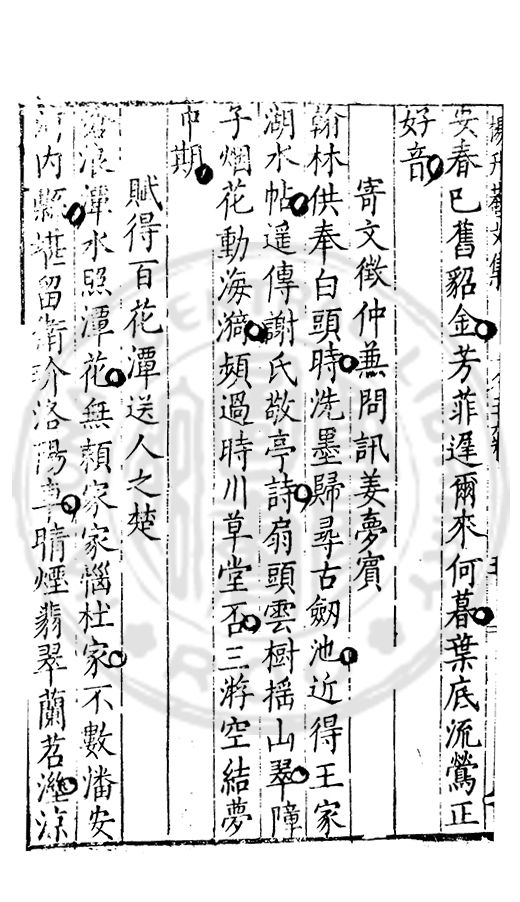 安春巳舊貂金芳菲遲爾來何暮葉底流鶯正
好音
寄文徵仲兼問訊姜夢賓
翰林供奉白頭時洗墨歸尋古劒池近得王家
湖水帖遥傳謝氏敬亭詩扇頭雲樹揺山翠障
子烟花動海漪頻過時川草堂否三游空結夢
中期
賦得百花潭送人之楚
滄浪潭水照潭花無頼家家惱杜家不數潘安
河内縣堪留衛玠洛陽車晴煙翡翠蘭苕溼涼